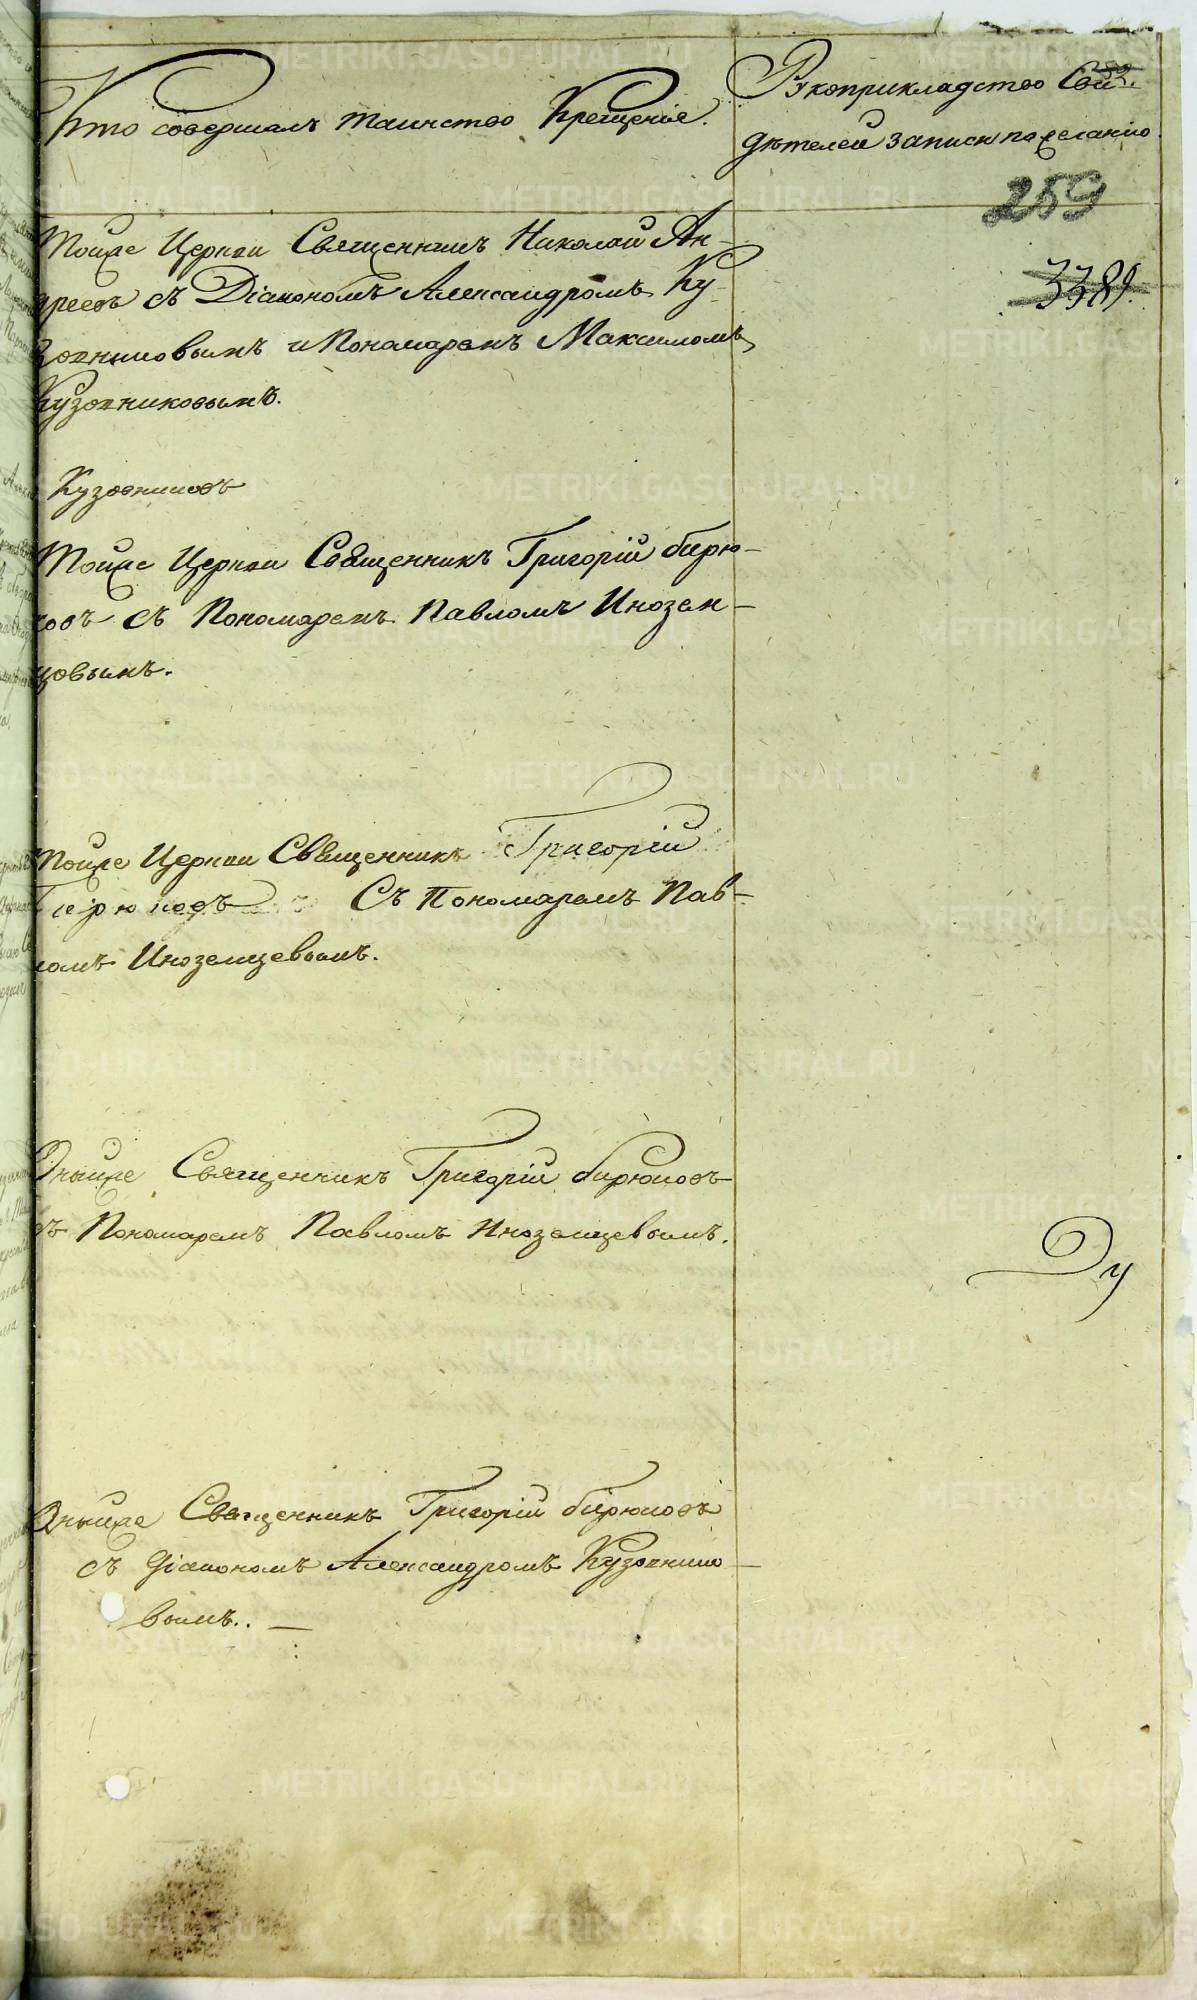 Кто совершалъ таинство Крещенiе.
Рукоприкладство Сви
дѣтелей записи по желанiю.
259
3389.
Тойже Церкви Священникъ Николай Ан-
дреевъ съ Дiакономъ Александромъ Ку
зовниковымъ и Пономаремъ Максимомъ
Кузовниковымъ.
Кузовниковъ
Тойже Церкви Священникъ Григорiй бирю-
ковъ съ Пономаремъ Павломъ Инозем-
цовымъ.
Тойже Церкви Священникъ Григорiй
Бирюковъ Съ Пономаремъ Пав-
ломъ Иноземцевымъ.
Оныйже Священникъ Григорiй бирюковъ
съ Пономаремъ Павломъ Иноземцевымъ.
Ду
Оныйже Священникъ Григорiй бирюковъ
съ дiакономъ Александромъ Кузовнико-
вымъ.. —
METRIKI.GASO-URAL.RU